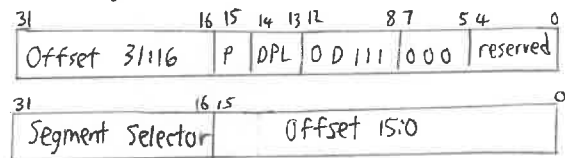 31 16 15 14 13 12 8 7 5 4 0
Offset 31:16 P DPL 0 D 111 000 reserved
31 16 15 0
Segment Selector Offset 15:0